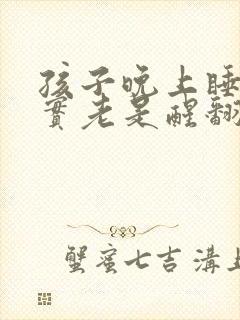 孩子晚上睡
實老是醒翻
蟹蜜七吉溝上